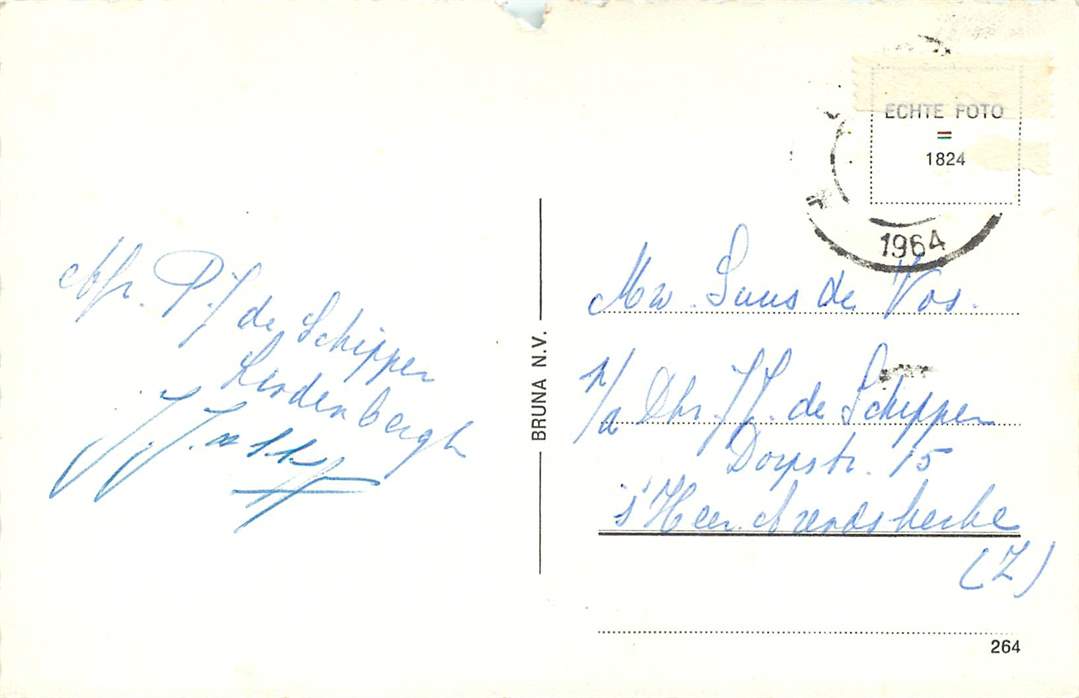 Afz. P.J. de Schipper
Lindenbergh
ECHTE FOTO
=
1824
1964
BRUNA N.V.
Mw. Suus de Vos.
p/a Dhr. J.J. de Schipper
Dorpstr. 15
s'Heer Arendskerke
(Z)
264